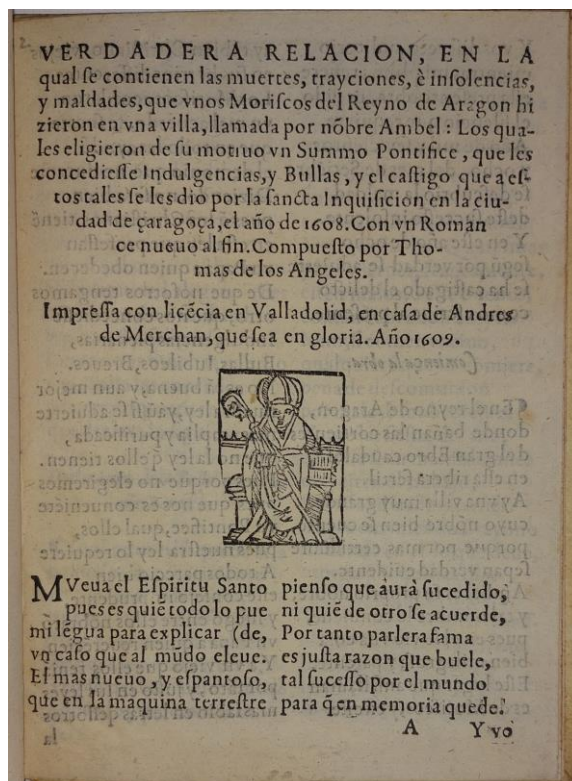 VERDADERA RELACION, EN LA
qual ſe contienen las muertes, trayciones, è inſolencias,
y maldades,que vnos Moriſcos del Reyno de Aragon hi
zieron en vna villa,llamada por nõbre Ambel : Los qua-
les eligieron de ſu motiuo vn Summo Pontifice, que les
concedieſſe Indulgencias,y Bullas, y el caſtigo que a eſ-
tos tales ſe les dio por la ſancta Inquiſicion en la ciu-
dad de çaragoça,el año de 1608.Con vn Roman
ce nueuo al fin.Compueſto por Tho-
mas de los Angeles.
Impreſſa con licẽcia en Valladolid, en caſa de Andres
de Merchan, que ſea en gloria. Año 1609.
MVeua el Eſpiritu Santo
pues es quiẽ todo lo pue
mi lẽgua para explicar (de,
vn caſo que al mũdo eleue.
El mas nueuo, y eſpantoſo,
que en la maquina terreſtre
pienſo que aurà ſucedido,
ni quiẽ de otro ſe acuerde,
Por tanto parlera fama
es juſta razon que buele,
tal ſuceſſo por el mundo
para q̃ en memoria quede.
A Y vo